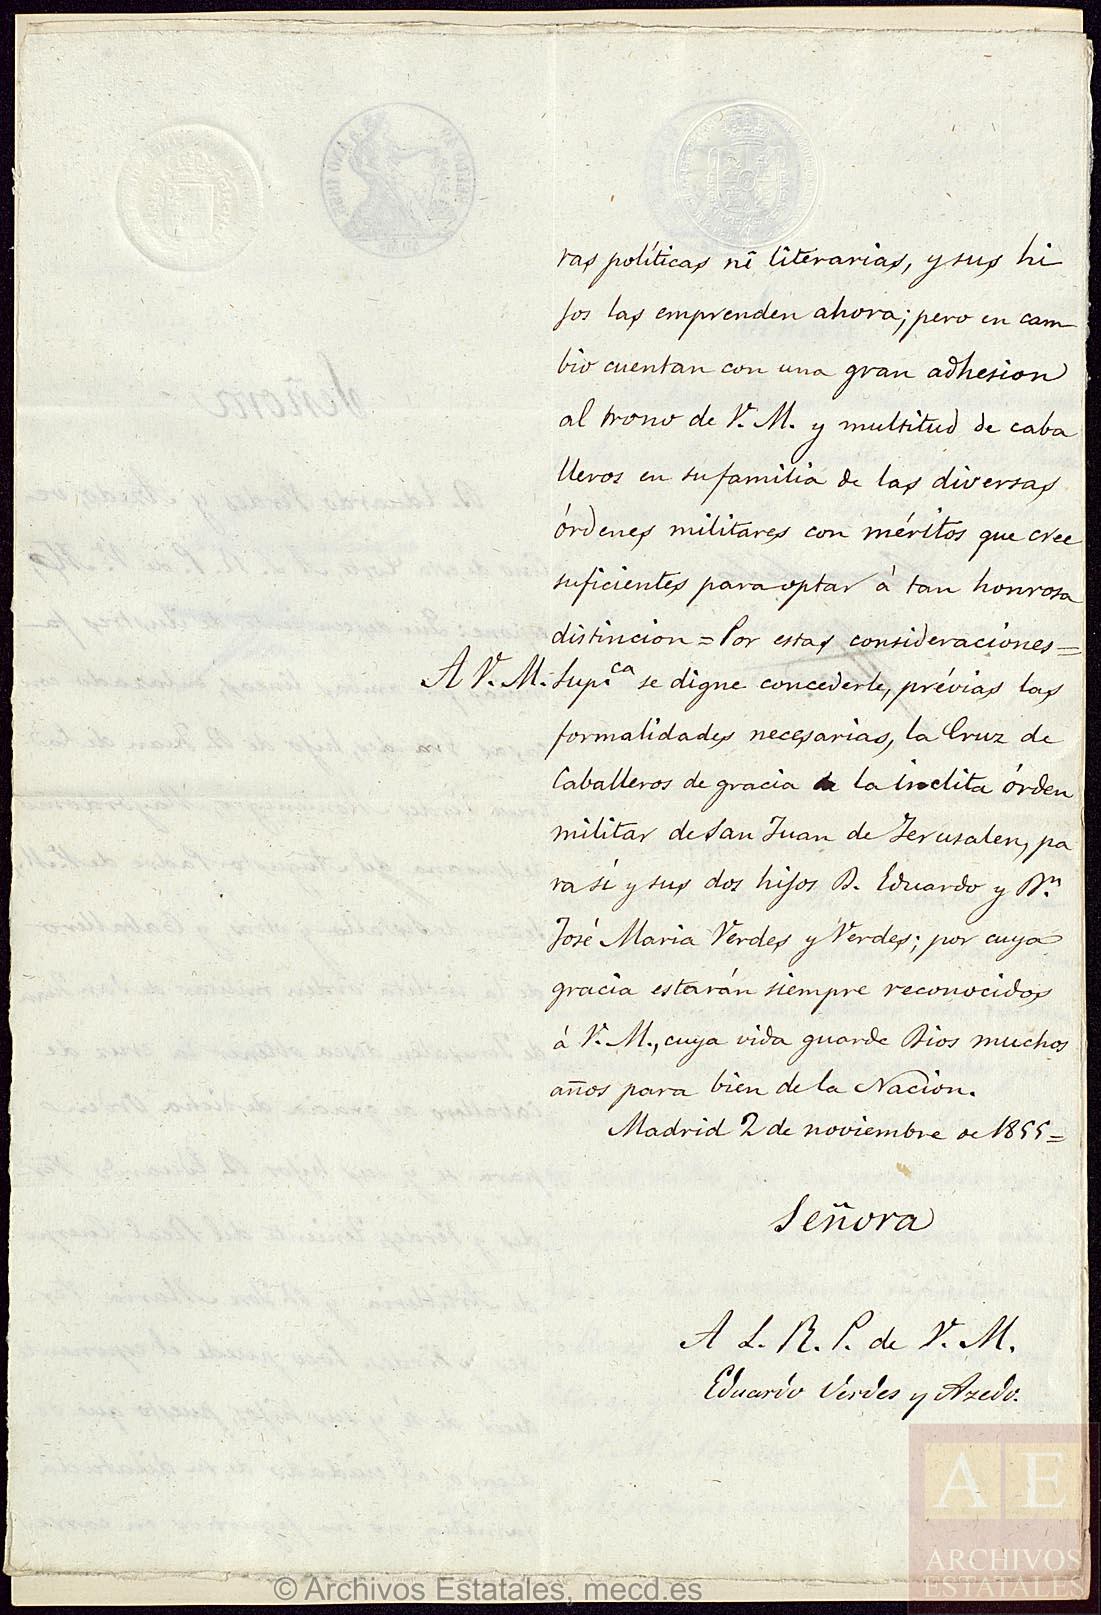 ras políticas ni literarias, y sus hi
jos las emprenden ahora; pero en cam-
bio cuentan con una gran adhesion
al trono de V. M. y multitud de caba
lleros en su familia de las diversas
órdenes militares con méritos que cree
suficientes para optar á tan honrosa
distincion = Por estas consideraciones =
A V. M. Sup.ca se digne concederle, prévias las
formalidades necesarias, la Cruz de
Caballeros de gracia de la ínclita órden
militar de San Juan de Jerusalen, pa
ra sí y sus dos hijos D. Eduardo y Dn.
José Maria Verdes y Verdes; por cuya
gracia estarán siempre reconocidos
á V. M., cuya vida guarde Dios muchos
años para bien de la Nacion.
Madrid 2 de noviembre de 1855=
Señora
A L. R. P. de V. M.
Eduardo Verdes y Azedo.
AE
ARCHIVOS
ESTATALES
© Archivos Estatales, mecd.es